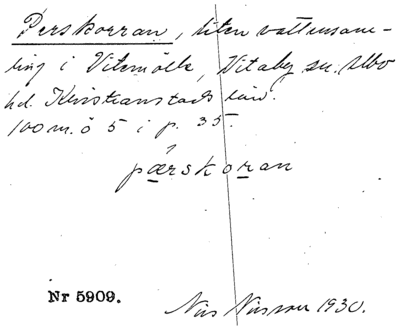 Perskorran, liten vattensam-
ling i Vitemölle, Vitaby sn. Albo
hd. Kristianstads län.
100 m. ö 5 i p. 35.
pærskoran
Nr 5909.
Nils Nilsson 1930.